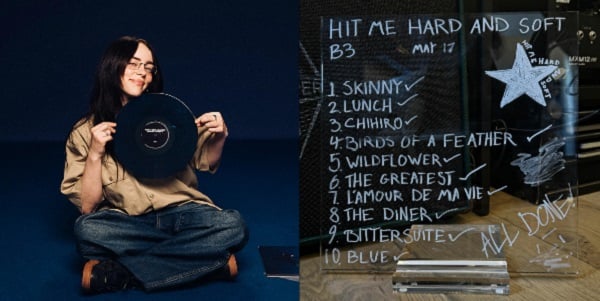 HIT ME HARD AND SOFT
B3 MAY 17
HIT ME HARD AND SOFT
1 SKINNY ✓
2 LUNCH ✓
3. CHIHIRO ✓
4. BIRDS OF A FEATHER ✓
5. WILDFLOWER ✓
6. THE GREATEST ✓
7 L'AMOUR DE MA VIE ✓
8 THE DINER ✓
9. BITTERSUITE ✓
10. BLUE ✓
ALL DONE!